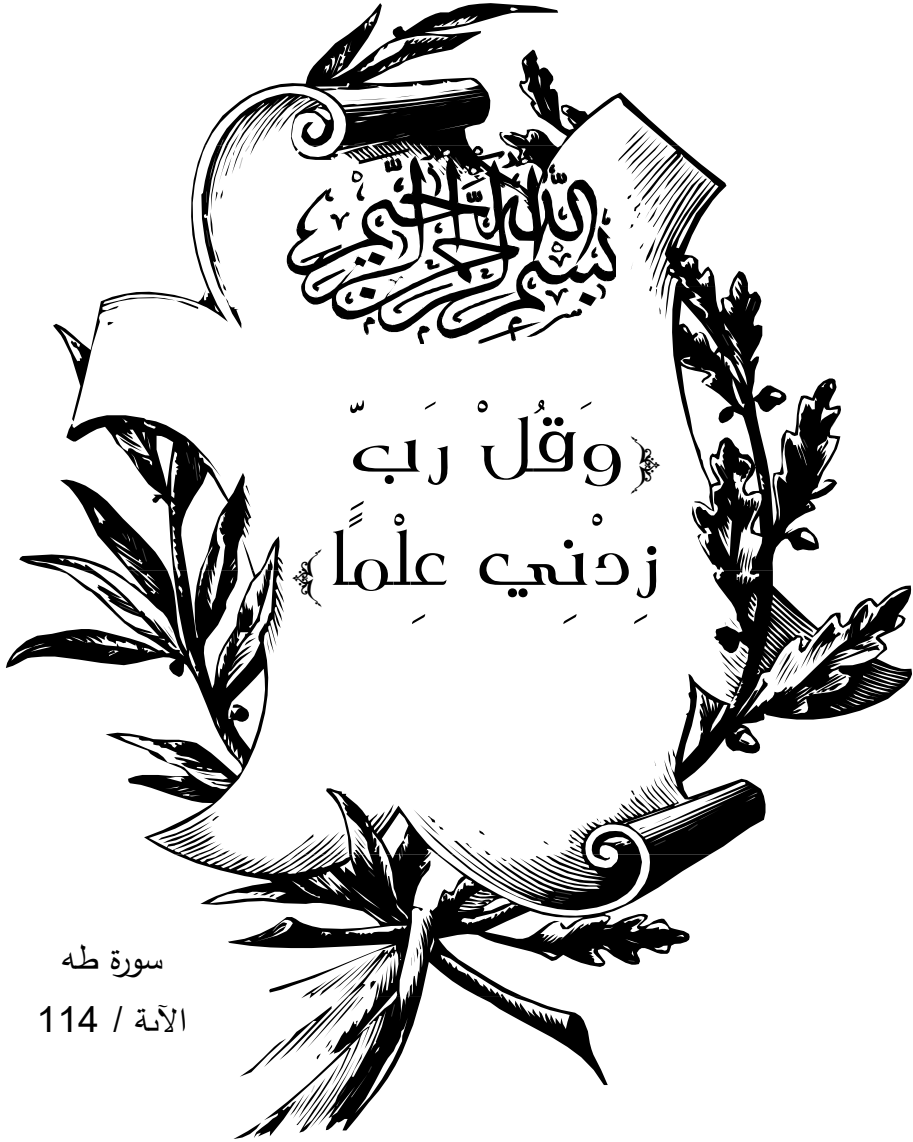 بسم الله الرحمن الرحيم
﴿وَقُلْ رَبّ
زِدْنِي عِلْمًا﴾
سورة طه
الآية / 114